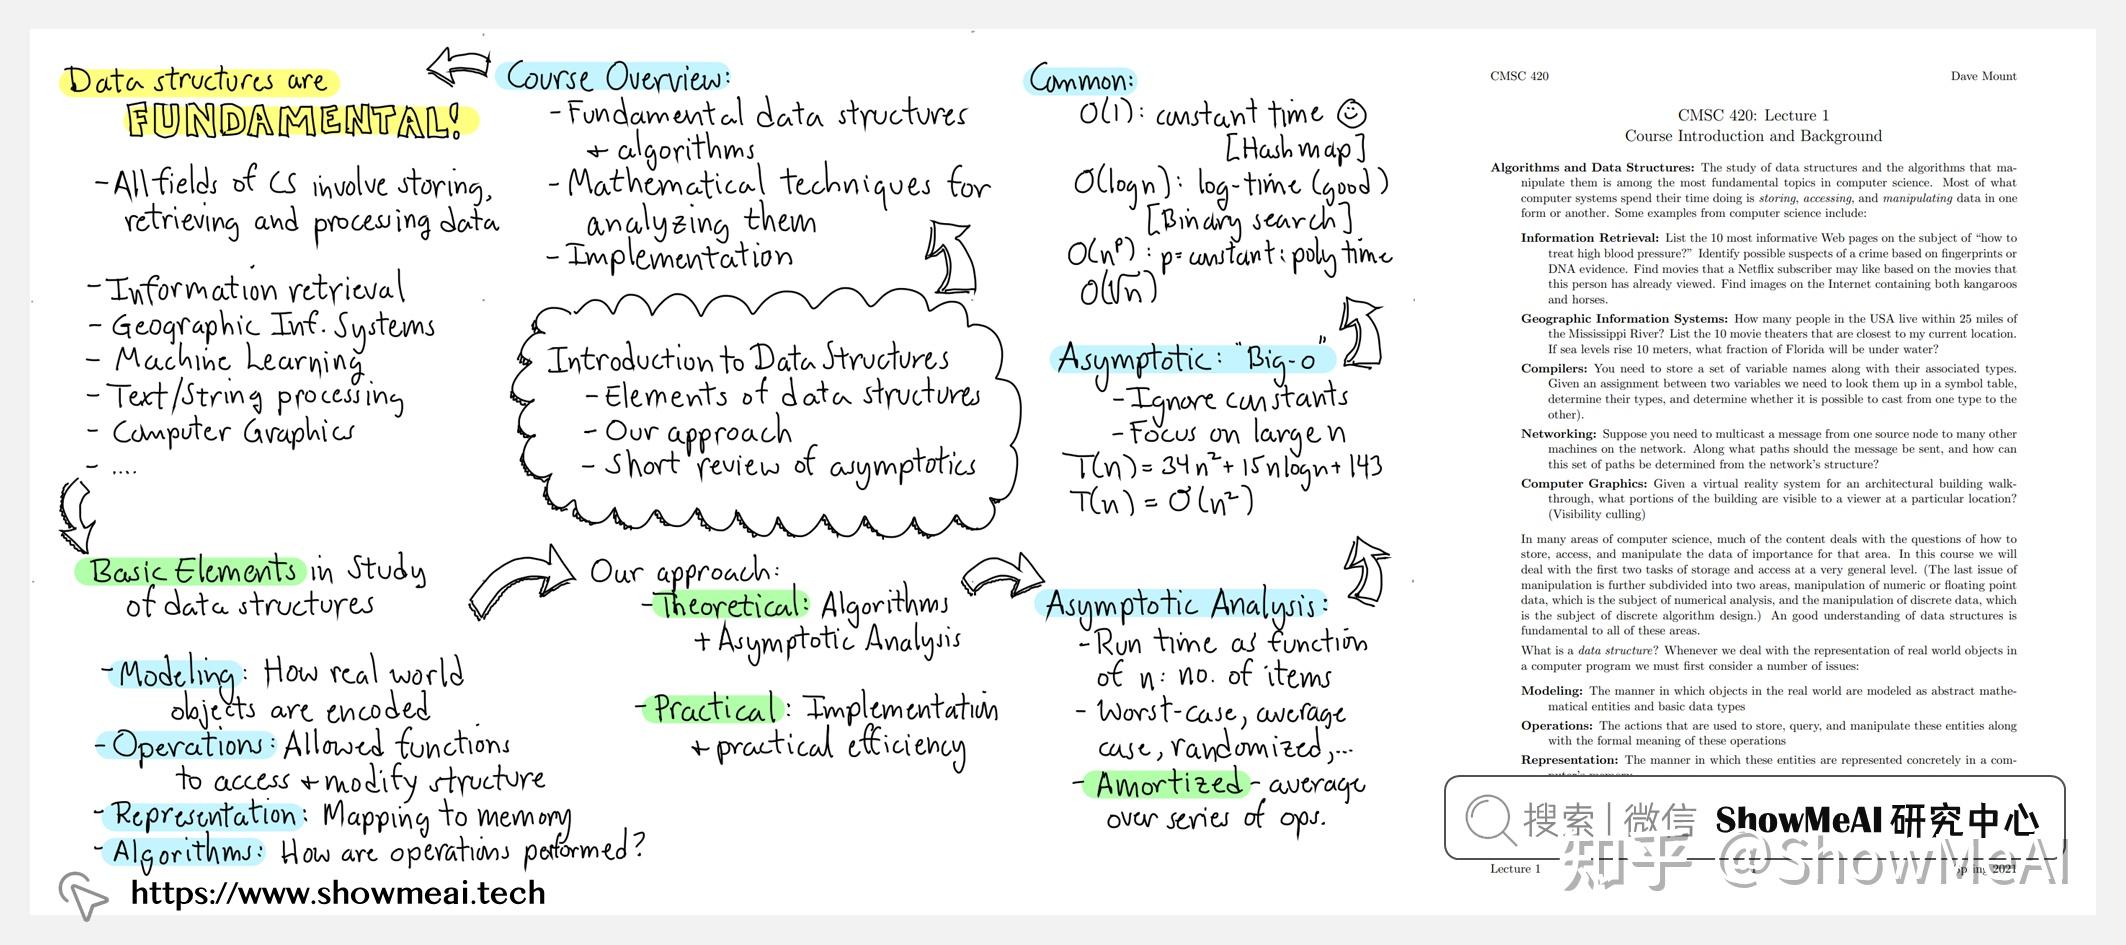 Data structures are
FUNDAMENTAL!
- All fields of CS involve storing,
retrieving and processing data
- Information retrieval
- Geographic Inf. Systems
- Machine Learning
- Text/String processing
- Computer Graphics
- ....
Basic Elements in Study
of data structures
- Modeling: How real world
objects are encoded
- Operations: Allowed functions
to access + modify structure
- Representation: Mapping to memory
- Algorithms: How are operations performed?
https://www.showmeai.tech
Course Overview:
- Fundamental data structures
+ algorithms
- Mathematical techniques for
analyzing them
- Implementation
Introduction to Data Structures
- Elements of data structures
- Our approach
- Short review of asymptotics
Our approach:
- Theoretical: Algorithms
+ Asymptotic Analysis
- Practical: Implementation
+ practical efficiency
Common:
O(1): constant time ☺
[Hash map]
O(log n): log-time (good)
[Binary search]
O(nᵖ): p = constant: poly time
O(√n)
Asymptotic: "Big-O"
- Ignore constants
- Focus on large n
T(n) = 34n² + 15nlogn + 143
T(n) = O(n²)
Asymptotic Analysis:
- Run time as function
of n: no. of items
- Worst-case, average
case, randomized,...
- Amortized - average
over series of ops.
CMSC 420 Dave Mount
CMSC 420: Lecture 1
Course Introduction and Background
Algorithms and Data Structures: The study of data structures and the algorithms that ma-
nipulate them is among the most fundamental topics in computer science. Most of what
computer systems spend their time doing is storing, accessing, and manipulating data in one
form or another. Some examples from computer science include:
Information Retrieval: List the 10 most informative Web pages on the subject of “how to
treat high blood pressure?” Identify possible suspects of a crime based on fingerprints or
DNA evidence. Find movies that a Netflix subscriber may like based on the movies that
this person has already viewed. Find images on the Internet containing both kangaroos
and horses.
Geographic Information Systems: How many people in the USA live within 25 miles of
the Mississippi River? List the 10 movie theaters that are closest to my current location.
If sea levels rise 10 meters, what fraction of Florida will be under water?
Compilers: You need to store a set of variable names along with their associated types.
Given an assignment between two variables we need to look them up in a symbol table,
determine their types, and determine whether it is possible to cast from one type to the
other).
Networking: Suppose you need to multicast a message from one source node to many other
machines on the network. Along what paths should the message be sent, and how can
this set of paths be determined from the network’s structure?
Computer Graphics: Given a virtual reality system for an architectural building walk-
through, what portions of the building are visible to a viewer at a particular location?
(Visibility culling)
In many areas of computer science, much of the content deals with the questions of how to
store, access, and manipulate the data of importance for that area. In this course we will
deal with the first two tasks of storage and access at a very general level. (The last issue of
manipulation is further subdivided into two areas, manipulation of numeric or floating point
data, which is the subject of numerical analysis, and the manipulation of discrete data, which
is the subject of discrete algorithm design.) An good understanding of data structures is
fundamental to all of these areas.
What is a data structure? Whenever we deal with the representation of real world objects in
a computer program we must first consider a number of issues:
Modeling: The manner in which objects in the real world are modeled as abstract mathe-
matical entities and basic data types
Operations: The actions that are used to store, query, and manipulate these entities along
with the formal meaning of these operations
Representation: The manner in which these entities are represented concretely in a com-
搜索 | 微信 ShowMeAI 研究中心
知乎 @ShowMeAI
Lecture 1 2021